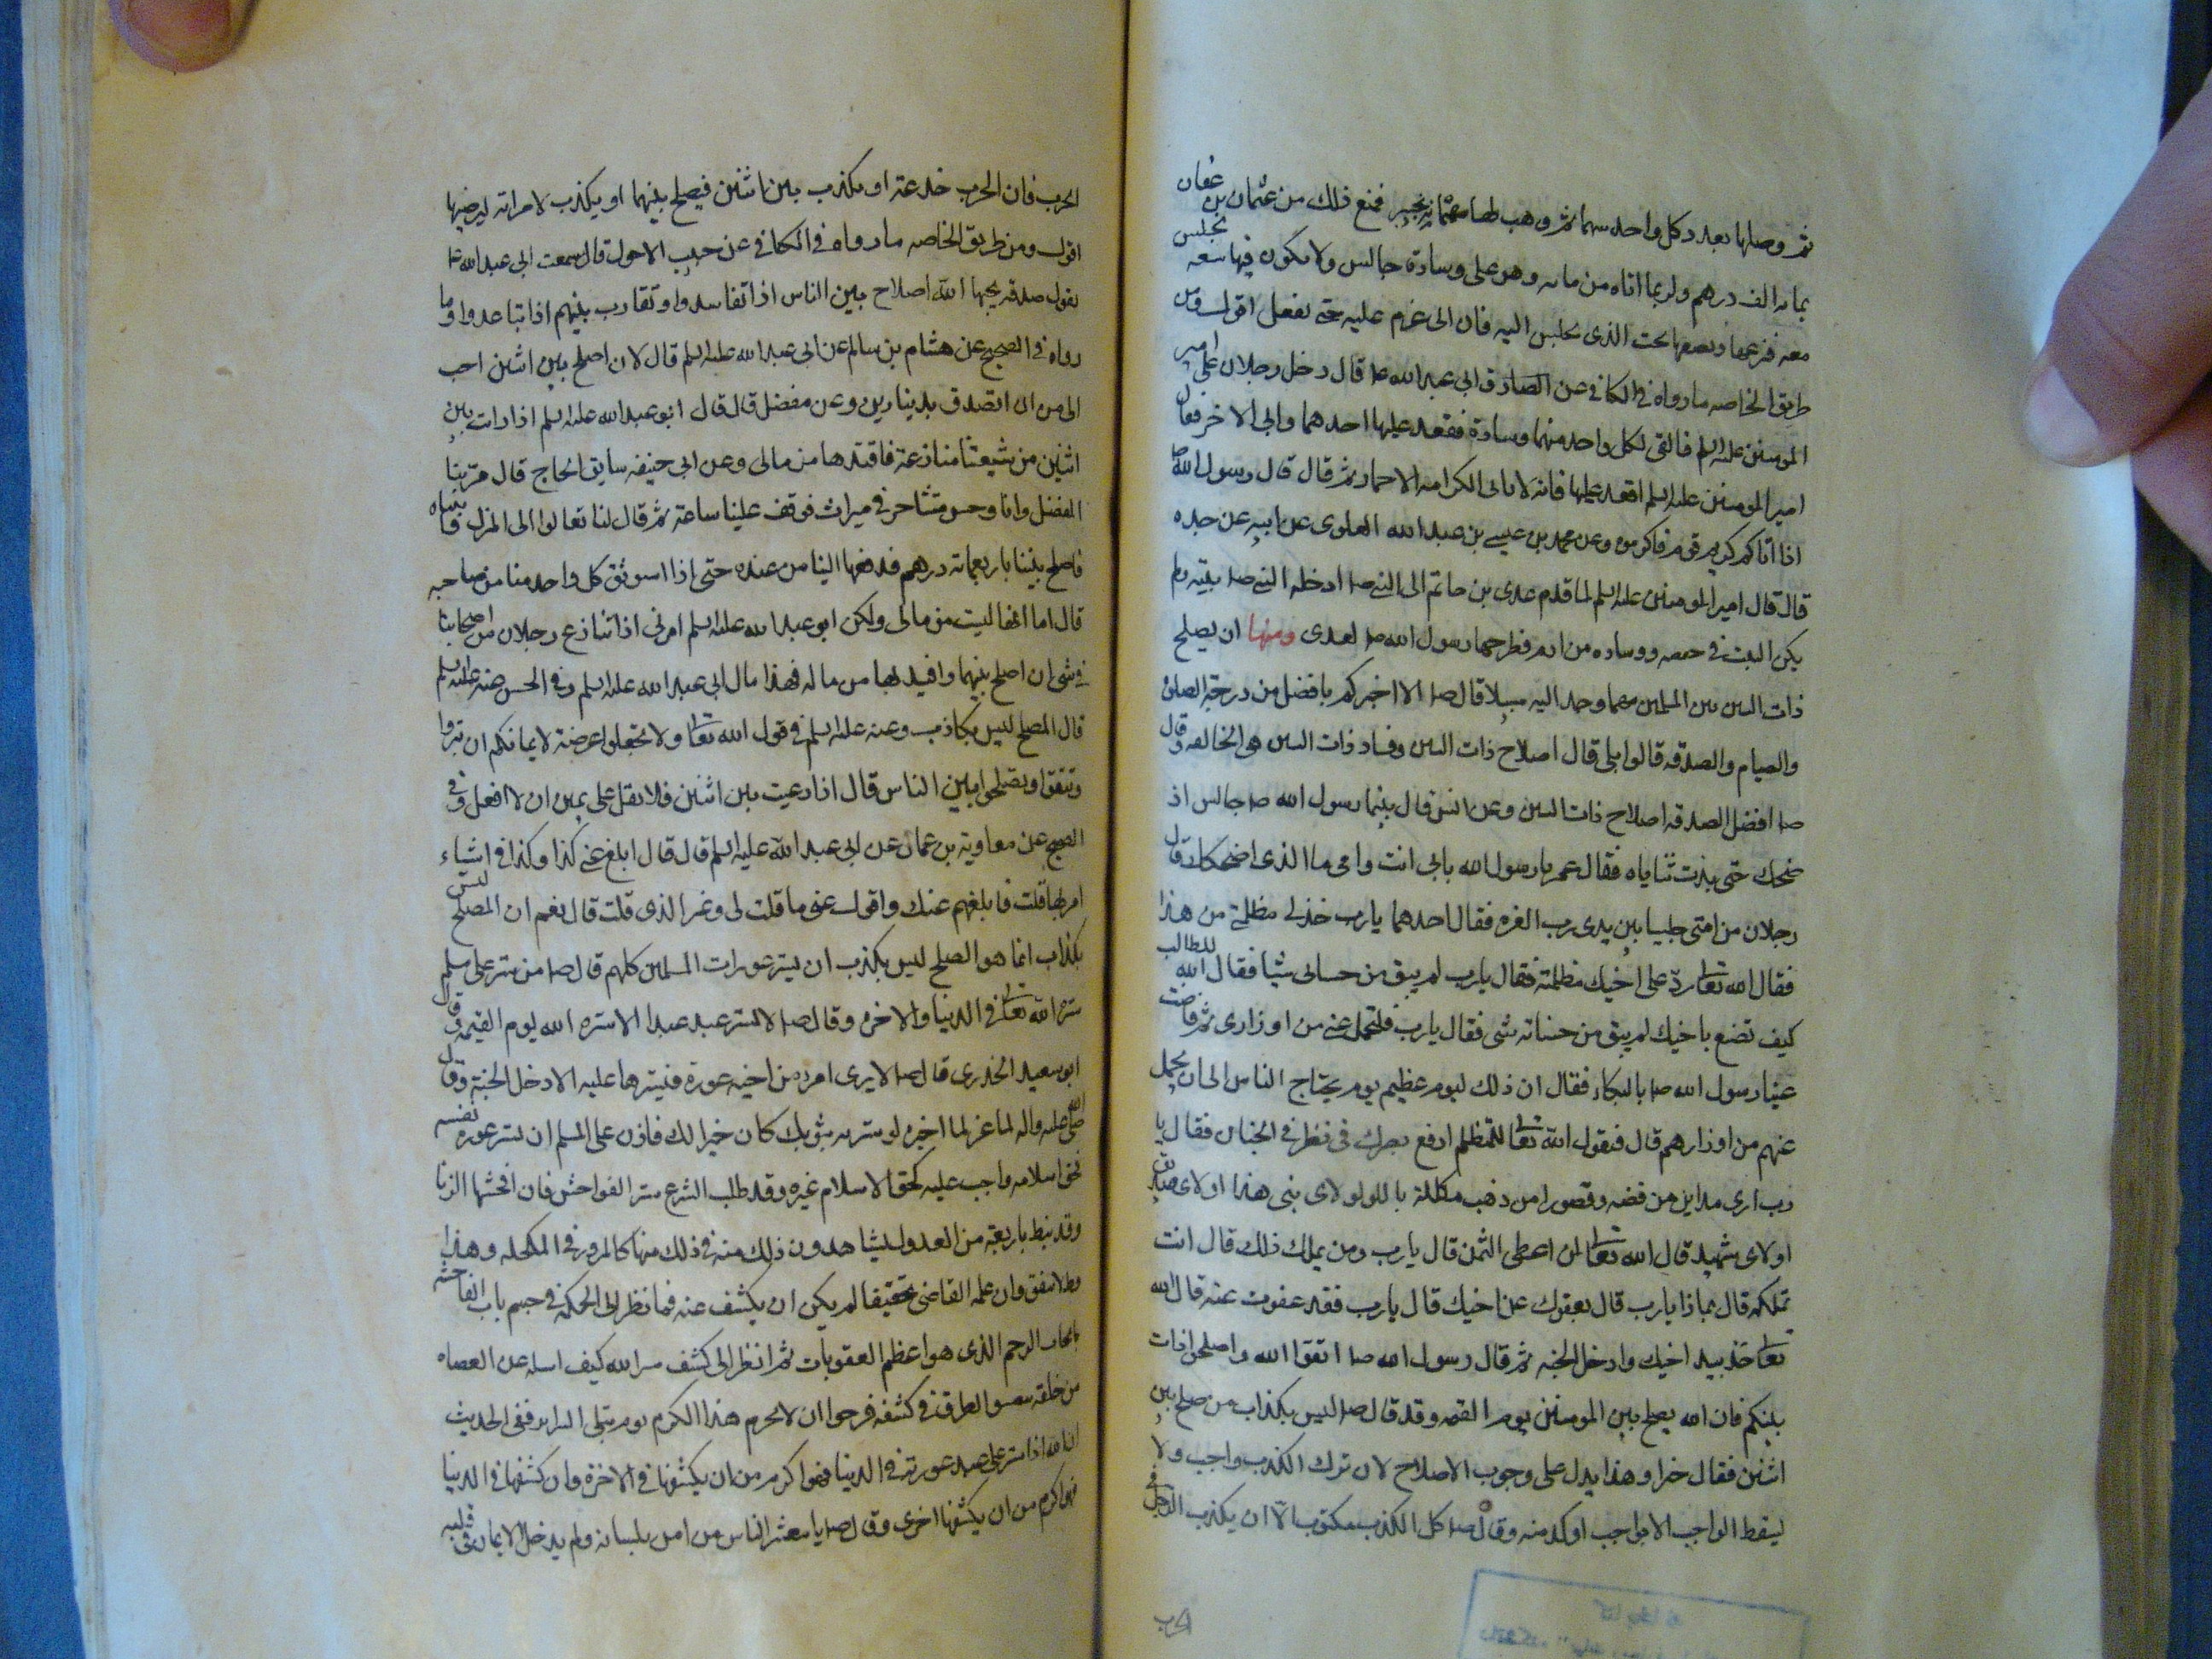 ثم وصلها بعدد كل واحد سهما ثم وهب لها سهمانه بخيبر فبيع ذلك من عثمان بن عفان
بمائه الف درهم ولربما اتاه من ياتيه وهو على وسادة جالس ولا يكون فيها سعه يجلس
معه فنزعها ويضعها تحت الذى يجلس اليه فان ابى عزم عليه حتى يفعل اقول ومن
طريق الخاصه ما رواه فى الكافى عن الصادق ابى عبد الله ع قال دخل رجلان على امير
المومنين عليه السلم فالقى لكل واحد منهما وسادة فقعد عليها احدهما وابى الاخر فقال
امير المومنين عليه السلم اقعد عليها فانه لا يابى الكرامه الا حمار ثم قال قال رسول الله ص
اذا اتاكم كريم قوم فاكرموه وعن محمد بن عيسى بن عبد الله العلوى عن ابيه عن جده
قال قال امير المومنين عليه السلم لما قدم عدى بن حاتم الى النبى ص ادخله النبى ص بيته ولم
يكن البيت فى خصفه ووساده من ادم فطرحها رسول الله ص لعدى ومنها ان يصلح
ذات البين بين المسلمين مهما وجد اليه سبيلا قال ص الا اخبركم بافضل من درجة الصلوة
والصيام والصدقه قالوا بلى قال اصلاح ذات البين وفساد ذات البين هى الحالقه وقال
ص افضل الصدقه اصلاح ذات البين وعن انس قال بينما رسول الله ص جالس اذ
ضحك حتى بدت ثناياه فقال عمر يا رسول الله بابى انت وامى ما الذى اضحكك قال
رجلان من امتى جثيا بين يدى رب العزه فقال احدهما يا رب خذ لى مظلمتى من هذا
فقال الله تعالى رد على اخيك مظلمته فقال يا رب لم يبق من حسناتى شيئا فقال الله للطالب
كيف تصنع باخيك لم يبق من حسناته شى فقال يا رب فليحمل عنى من اوزارى ثم فاضت
عينا رسول الله ص بالبكاء فقال ان ذلك ليوم عظيم يوم يحتاج الناس الى ان يحمل
عنهم من اوزارهم قال فيقول الله تعالى للمتظلم ارفع بصرك فانظر فى الجنان فقال يا
رب ارى مداين من فضه وقصورا من ذهب مكللة باللولو لاى نبى هذا او لاى صديق
او لاى شهيد قال الله تعالى لمن اعطى الثمن قال يا رب ومن يملك ذلك قال انت
تملكه قال بماذا يا رب قال بعفوك عن اخيك قال يا رب فقد عفوت عنه قال الله
تعالى خذ بيد اخيك وادخل الجنه ثم قال رسول الله ص اتقوا الله واصلحوا ذات
بينكم فان الله يصلح بين المومنين يوم القيمه وقد قال ص ليس بكذاب من صلح بين
اثنين فقال خيرا وهذا يدل على وجوب الاصلاح لان ترك الكذب واجب ولا
يسقط الواجب الا بواجب اوكد منه وقال ص كل الكذب مكتوب الا ان يكذب الرجل فى
الحرب
الحرب فان الحرب خدعة او يكذب بين اثنين فيصلح بينهما او يكذب لامراته ليرضيها
اقول ومن طريق الخاصه ما رواه فى الكافى عن حبيب الاحول قال سمعت ابى عبد الله ع
يقول صدقه يحبها الله اصلاح بين الناس اذا تفاسدوا وتقارب بينهم اذا تباعدوا وما
رواه فى الصحيح عن هشام بن سالم عن ابى عبد الله عليه السلم قال لان اصلح بين اثنين احب
الى من ان اتصدق بدينارين وعن مفضل قال قال ابو عبد الله عليه السلم اذا رات بين
اثنين من شيعتنا منازعة فافتدها من مالى وعن ابى حنيفه سايق الحاج قال مر بنا
المفضل وانا وختنى نتشاجر فى ميراث فوقف علينا ساعة ثم قال لنا تعالوا الى المنزل فاتيناه
فاصلح بيننا باربعمائه درهم فدفعها الينا من عنده حتى اذا استوثق كل واحد منا من صاحبه
قال اما انها ليست من مالى ولكن ابو عبد الله عليه السلم امرنى اذا تنازع رجلان من اصحابنا
فى شى ان اصلح بينهما وافتديها من ماله فهذا مال ابى عبد الله عليه السلم وفى الحسن عنه عليه السلم
قال المصلح ليس بكاذب وعنه عليه السلم فى قول الله تعالى ولا تجعلوا الله عرضة لايمانكم ان تبروا
وتتقوا وتصلحوا بين الناس قال اذا دعيت بين اثنين فلا تقل على يمين ان لا افعل وفى
الصحيح عن معاوية بن عمار عن ابى عبد الله عليه السلم قال قال ابلغ عنى كذا وكذا فى اشياء
امر بها قلت فابلغهم عنك واقول عنى ما قلت لى وغير الذى قلت قال نعم ان المصلح ليس
بكذاب انما هو الصلح ليس بكذب ان يستر عورات المسلمين كلهم قال ص من ستر على مسلم
ستره الله تعالى فى الدنيا والاخره وقال ص لا يستر عبد عبدا الا ستره الله يوم القيمه وقال
ابو سعيد الخدرى قال ص لا يرى امرء من اخيه عورة فيسترها عليه الا دخل الجنة وقال
صلى الله عليه واله لماعز لما اخبره لو سترته بثوبك كان خيرا لك فاذن على المسلم ان يستر عوره نفسه
فحق اسلامه واجب عليه كحق الاسلام غيره وقد طلب الشرع ستر الفواحش فان افحشها الزنا
وقد نيط باربعة من العدول يشاهدون ذلك منه فى ذلك منها كالمرود فى المكحله وهذا
قط لا يتفق وان علمه القاضى تحقيقا لم يكن ان يكشف عنه فانظر الى الحكمة فى حسم باب الفاحشه
بايجاب الرجم الذى هو اعظم العقوبات ثم انظر الى كشف ستر الله كيف اسبله عن العصاه
من خلقه بتضييق الطرق فى كشفه فرجوا ان لا نحرم هذا الكرم يوم تبلى السراير ففى الحديث
ان الله اذا ستر على عبد عورته فى الدنيا فهو اكرم من ان يكشفها فى الاخرة وان كشفها فى الدنيا
فهو اكرم من ان يكشفها اخرى وقال ص يا معشر الناس من امن بلسانه ولم يدخل الايمان فى قلبه